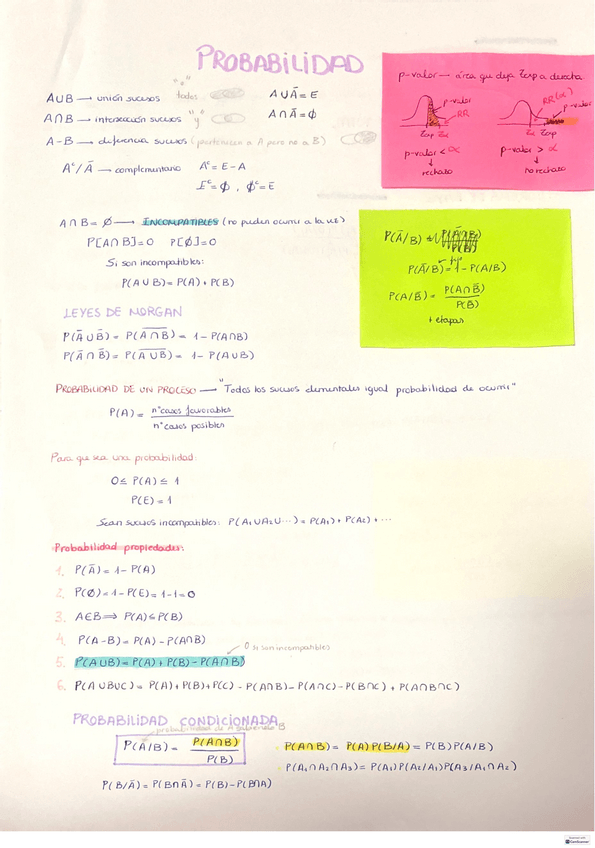 PROBABILIDAD
"o"
A∪B → unión sucesos todos
A∪Ā = E
A∩B → intersección sucesos "y"
A∩Ā = ∅
A-B → diferencia sucesos (pertenecen a A pero no a B)
Aᶜ/Ā → complementario Aᶜ = E-A
Eᶜ = ∅, ∅ᶜ = E̅
p-valor → área que deja Zexp a derecha
p-valor
RR
Zexp Zα
p-valor < α
↓
rechazo
RR(α)
p-valor
Zα Zexp
p-valor > α
↓
no rechazo
A∩B = ∅ → INCOMPATIBLES (no pueden ocurrir a la vez)
P[A∩B]=0 P[∅]=0
Si son incompatibles:
P(A∪B) = P(A) + P(B)
P(Ā/B) =
P(Ā/B) = 1-P(A/B)
P(A/B̄) = P(A∩B̄)
P(B̄)
+ etapas
LEYES DE MORGAN
P(Ā∪B̄) = P(A̅∩̅B̅) = 1-P(A∩B)
P(Ā∩B̄) = P(A̅∪̅B̅) = 1-P(A∪B)
PROBABILIDAD DE UN PROCESO → "Todos los sucesos elementales igual probabilidad de ocurrir"
P(A) = nºcasos favorables
nºcasos posibles
Para que sea una probabilidad:
0 ≤ P(A) ≤ 1
P(E) = 1
Sean sucesos incompatibles: P(A₁∪A₂∪···) = P(A₁) + P(A₂) + ···
Probabilidad propiedades:
1. P(Ā) = 1-P(A)
2. P(∅) = 1-P(E) = 1-1 = 0
3. A∈B ⟹ P(A) ≤ P(B)
4. P(A-B) = P(A) - P(A∩B)
0 si son incompatibles
5. P(A∪B) = P(A) + P(B) - P(A∩B)
6. P(A∪B∪C) = P(A) + P(B) + P(C) - P(A∩B) - P(A∩C) - P(B∩C) + P(A∩B∩C)
PROBABILIDAD CONDICIONADA
probabilidad de A sabiendo B
P(A/B) = P(A∩B)
P(B)
· P(A∩B) = P(A)P(B/A) = P(B)P(A/B)
· P(A₁∩A₂∩A₃) = P(A₁)P(A₂/A₁)P(A₃/A₁∩A₂)
P(B/Ā) = P(B∩Ā) = P(B) - P(B∩A)
CamScanner